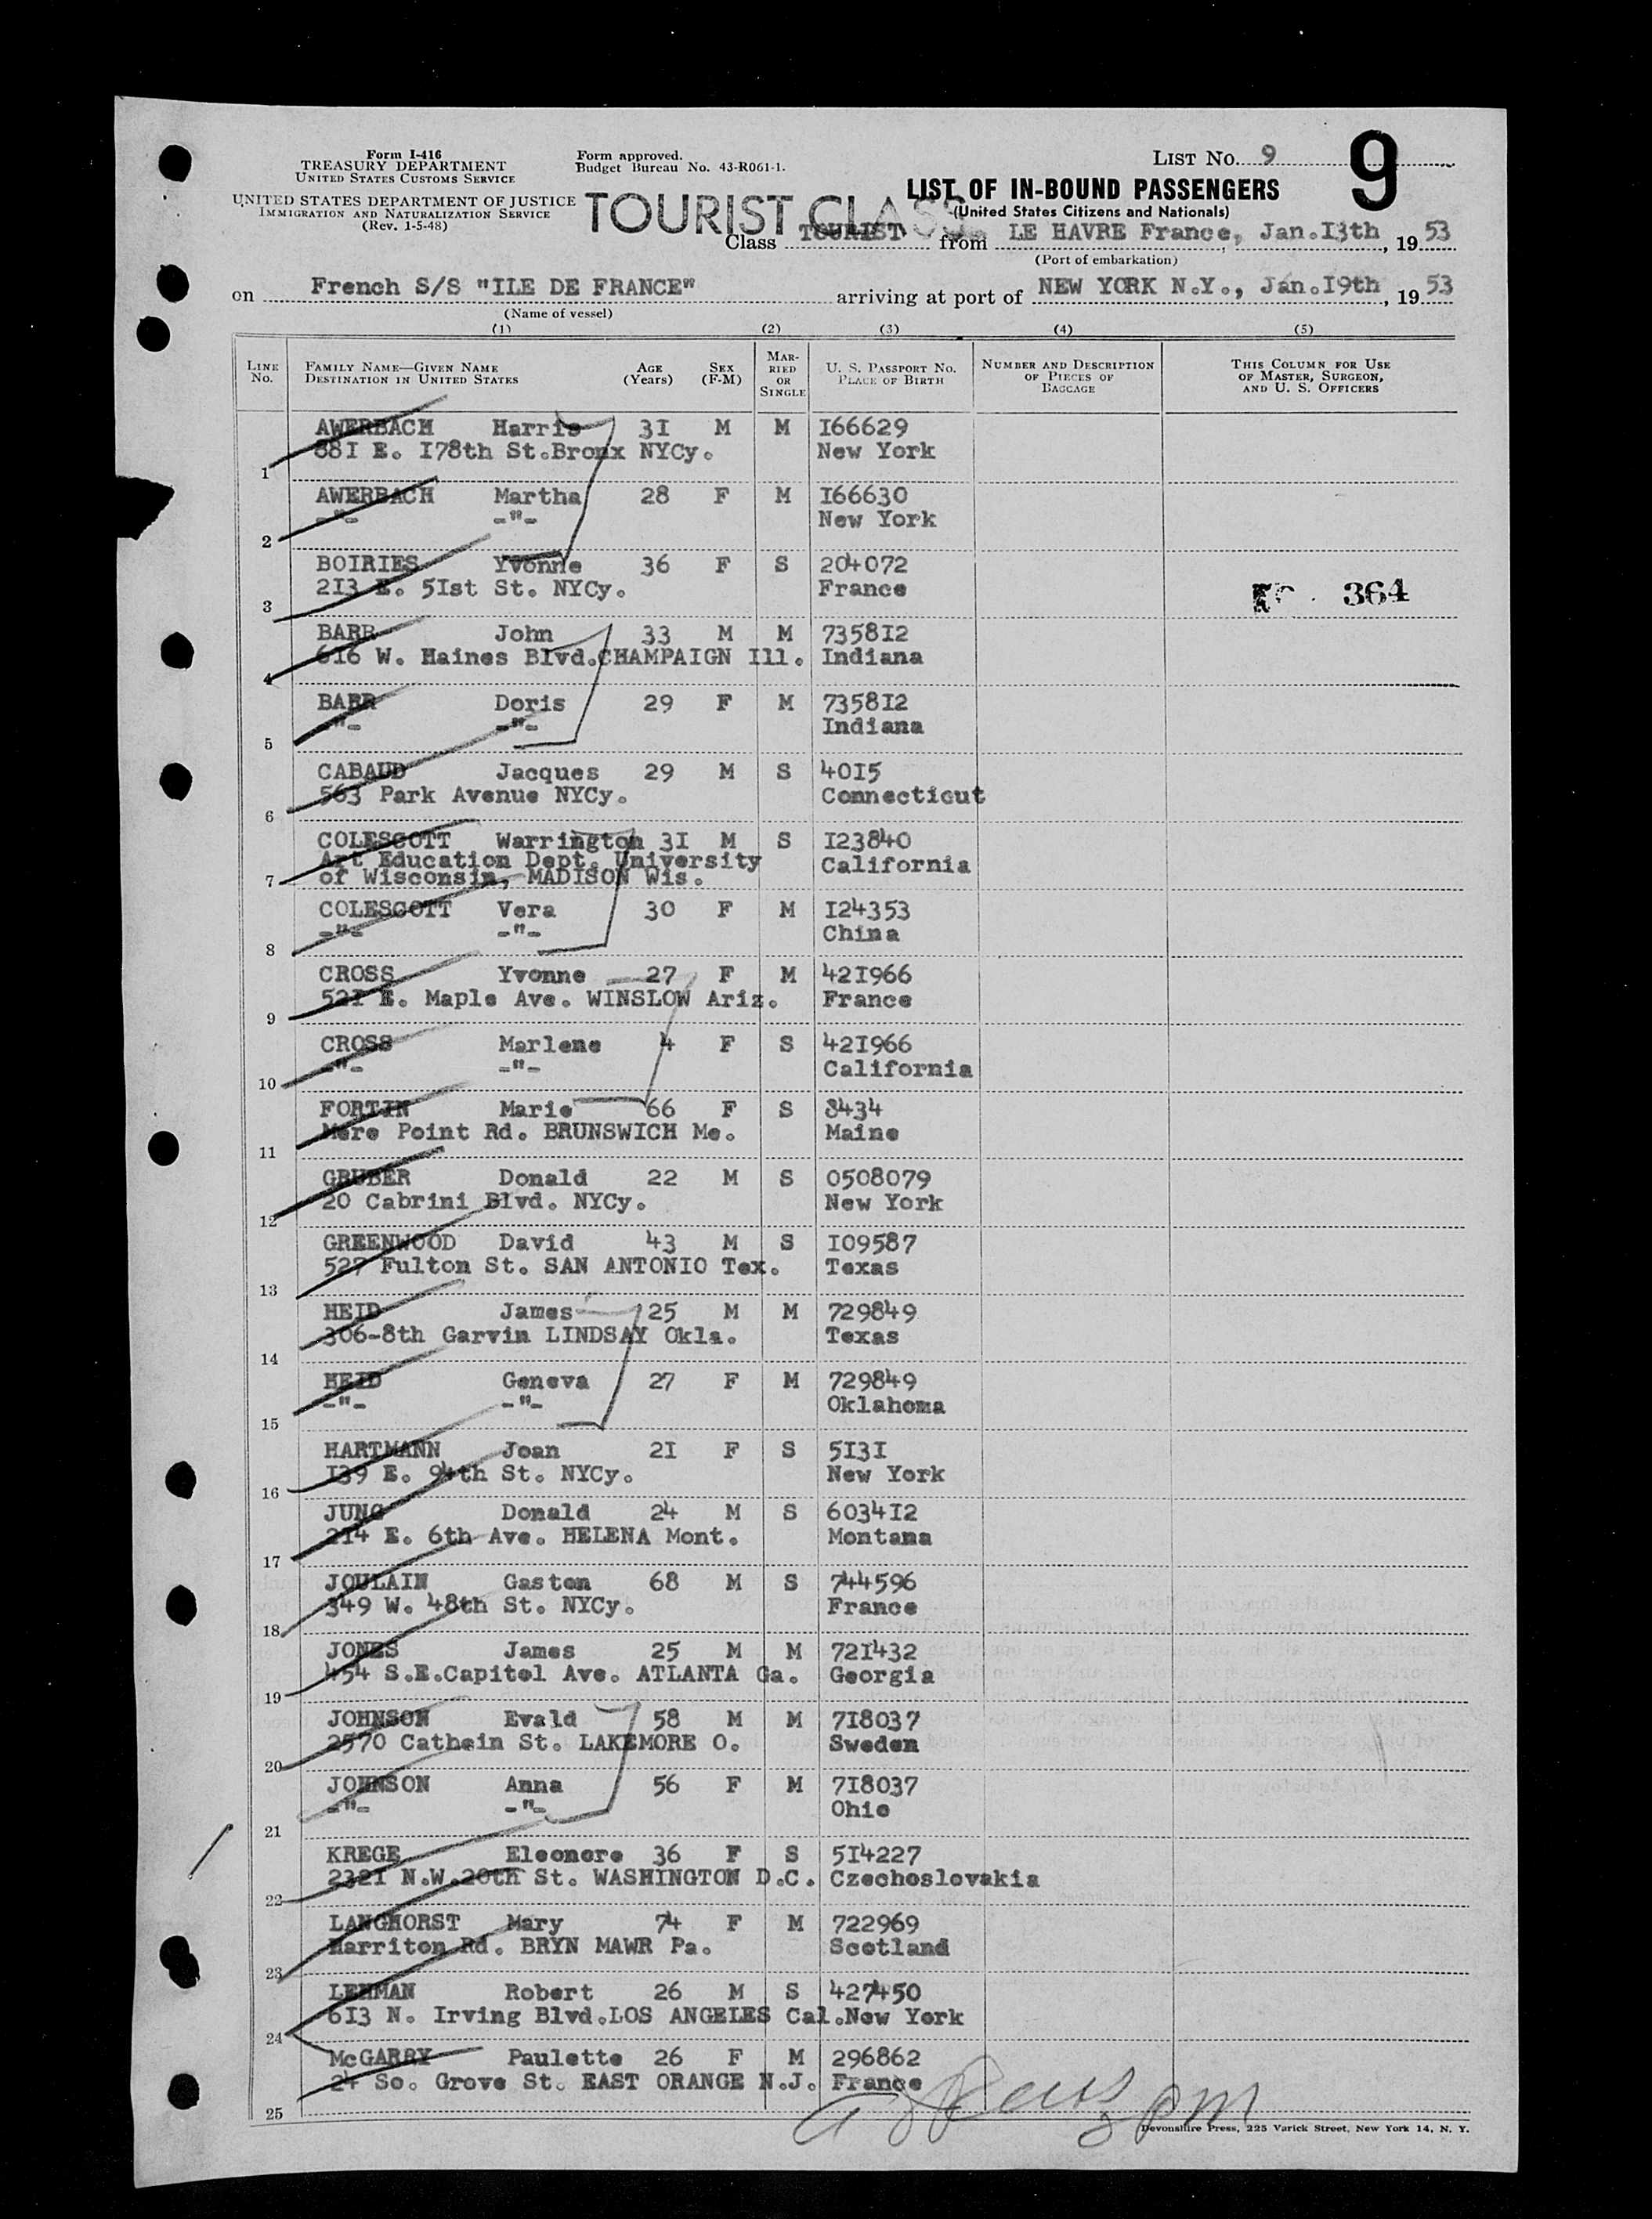 Form I-416
TREASURY DEPARTMENT
UNITED STATES CUSTOMS SERVICE
UNITED STATES DEPARTMENT OF JUSTICE
IMMIGRATION AND NATURALIZATION SERVICE
(Rev. 1-5-48)
Form approved.
Budget Bureau No. 43-R061-1.
LIST NO. 9
9
LIST OF IN-BOUND PASSENGERS
(United States Citizens and Nationals)
TOURIST CLASS
Class TOURIST from LE HAVRE France, Jan.I3th, 19 53
(Port of embarkation)
on French S/S "ILE DE FRANCE" arriving at port of NEW YORK N.Y., Jan.I9th, 19 53
(Name of vessel)
(1) (2) (3) (4) (5)
LINE No. FAMILY NAME—GIVEN NAME DESTINATION IN UNITED STATES AGE (Years) SEX (F-M) MARRIED OR SINGLE U. S. PASSPORT NO. PLACE OF BIRTH NUMBER AND DESCRIPTION OF PIECES OF BAGGAGE THIS COLUMN FOR USE OF MASTER, SURGEON, AND U. S. OFFICERS
AWERBACH Harris 3I M M I66629
88I E. I78th St.Bronx NYCy. New York
1
AWERBACH Martha 28 F M I66630
-"- -"- New York
2
BOIRIES Yvonne 36 F S 204072
2I3 E. 5Ist St. NYCy. France
3 364
BARR John 33 M M 7358I2
6I6 W. Haines Blvd.CHAMPAIGN Ill. Indiana
4
BARR Doris 29 F M 7358I2
-"- -"- Indiana
5
CABAUD Jacques 29 M S 40I5
563 Park Avenue NYCy. Connecticut
6
COLESCOTT Warrington 3I M S I23840
Art Education Dept. University California
of Wisconsin, MADISON Wis.
7
COLESCOTT Vera 30 F M I24353
-"- -"- China
8
CROSS Yvonne 27 F M 42I966
52I E. Maple Ave. WINSLOW Ariz. France
9
CROSS Marlene 4 F S 42I966
-"- -"- California
10
FORTIN Marie 66 F S 8434
Mere Point Rd. BRUNSWICH Me. Maine
11
GRUBER Donald 22 M S 0508079
20 Cabrini Blvd. NYCy. New York
12
GREENWOOD David 43 M S I09587
527 Fulton St. SAN ANTONIO Tex. Texas
13
HEID James 25 M M 729849
306-8th Garvin LINDSAY Okla. Texas
14
HEID Geneva 27 F M 729849
-"- -"- Oklahoma
15
HARTMANN Joan 2I F S 5I3I
I39 E. 94th St. NYCy. New York
16
JUNG Donald 24 M S 6034I2
2I4 E. 6th Ave. HELENA Mont. Montana
17
JOULAIN Gaston 68 M S 744596
349 W. 48th St. NYCy. France
18
JONES James 25 M M 72I432
454 S.E.Capitol Ave. ATLANTA Ga. Georgia
19
JOHNSON Evald 58 M M 7I8037
2570 Cathein St. LAKEMORE O. Sweden
20
JOHNSON Anna 56 F M 7I8037
-"- -"- Ohio
21
KREGE Eleonore 36 F S 5I4227
232I N.W.20th St. WASHINGTON D.C. Czechoslovakia
22
LANGHORST Mary 74 F M 722969
Harriton Rd. BRYN MAWR Pa. Scotland
23
LEHMAN Robert 26 M S 427450
6I3 N. Irving Blvd.LOS ANGELES Cal.New York
24
McGARRY Paulette 26 F M 296862
24 So. Grove St. EAST ORANGE N.J. France
25
Devonshire Press, 225 Varick Street, New York 14, N. Y.